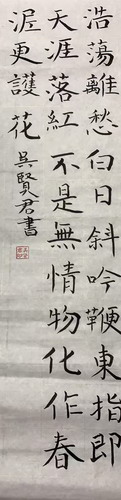 浩蕩離愁白日斜吟鞭東指即
天涯落紅不是無情物化作春
泥更護花
吳賢君書